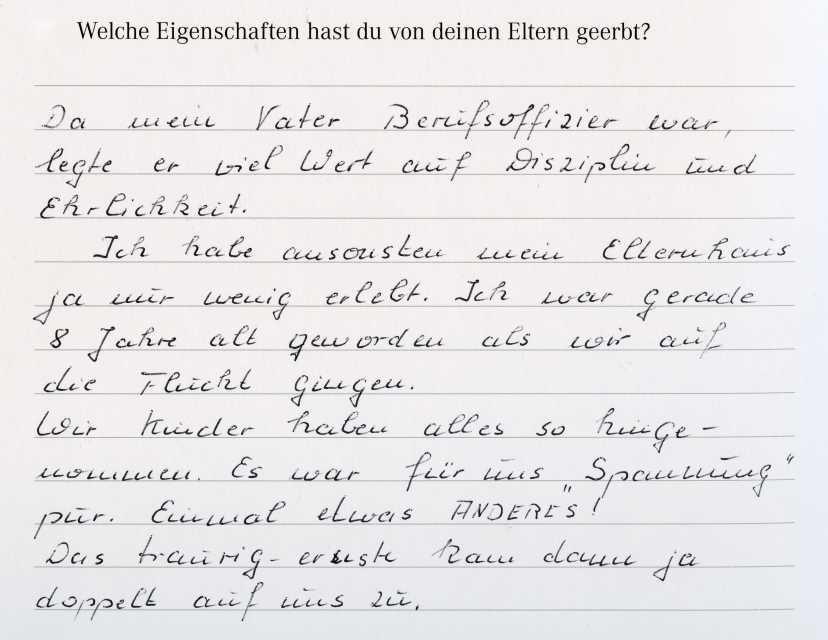 Welche Eigenschaften hast du von deinen Eltern geerbt?
Da mein Vater Berufsoffizier war,
legte er viel Wert auf Disziplin und
Ehrlichkeit.
Ich habe ansonsten mein Elternhaus
ja nur wenig erlebt. Ich war gerade
8 Jahre alt geworden als wir auf
die Flucht gingen.
Wir Kinder haben alles so hinge-
nommen. Es war für uns „Spannung“
pur. Einmal etwas ANDERES!
Das traurig-ernste kam dann ja
doppelt auf uns zu.